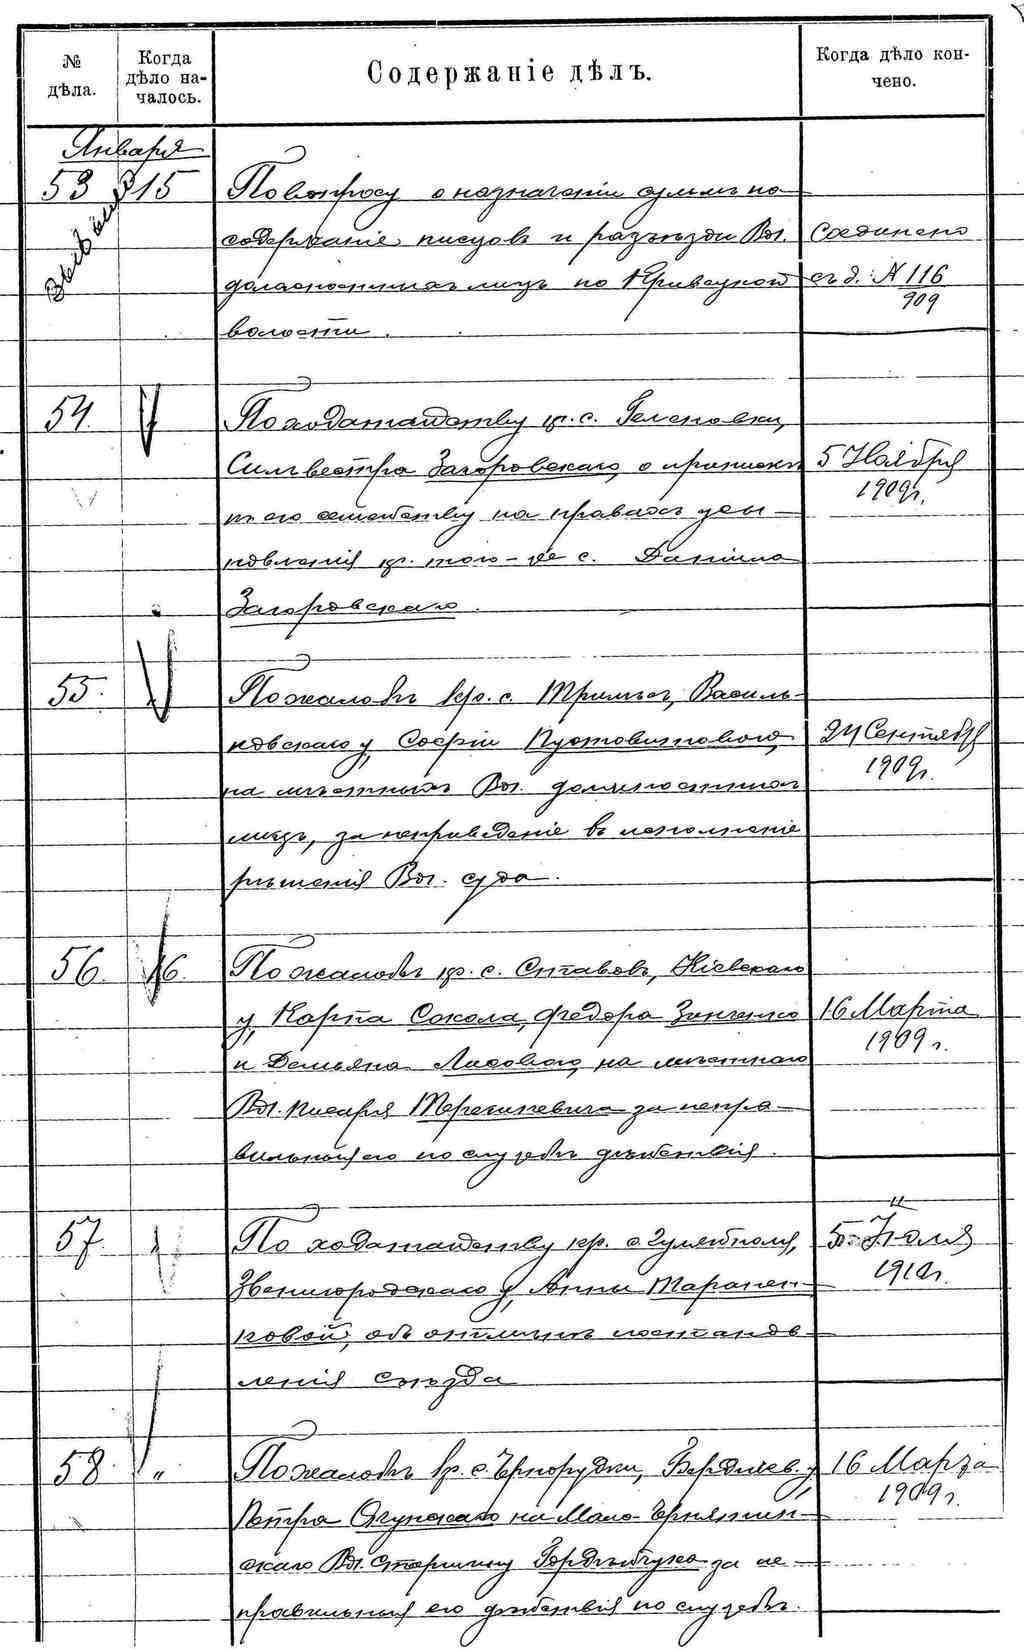 № дѣла.
Когда дѣло началось.
Содержаніе дѣлъ.
Когда дѣло кончено.
Января
53
15
По вопросу о назначеніи суммъ на
содержаніе писцовъ и разъѣзды Вол.
должностныхъ лицъ по Кривецкой
волости.
Соединено
съ д. № 116
909
54.
По ходатайству кр. с. Гельновки,
Сильвестра Загоровскаго, о припискѣ
къ его семейству на правахъ усы-
новленія кр. того-же с. Даніила
Загоровскаго.
5 Ноября
1909 г.
55.
По жалобѣ кр. с. Триллѣс, Василь-
ковскаго у, Софіи Пустовитовой,
на мѣстныхъ Вол. должностныхъ
лицъ, за неприведеніе въ исполненіе
рѣшенія Вол. суда.
24 Сентября
1909 г.
56.
16.
По жалобѣ кр. с. Ставовъ, Кіевскаго
у, Карпа Сокола, Федора Зинченко
и Демьяна Лисового, на мѣстнаго
Вол. писаря за непра-
вильныя его по службѣ дѣйствія.
16 Марта
1909 г.
57.
"
По ходатайству кр. с. Гуляйполя,
Звенигородскаго у, Анны Таранен-
ковой, объ отмѣнѣ постанов-
ленія съѣзда
5 Іюля
1910 г.
58.
"
По жалобѣ кр. с. Чернорудки, Бердичев. у,
Петра Ягунскаго на Мало-Чернявин-
скаго Вол. Старшину Гордѣйчука за не-
правильныя его дѣйствія по службѣ.
16 Марта
1909 г.